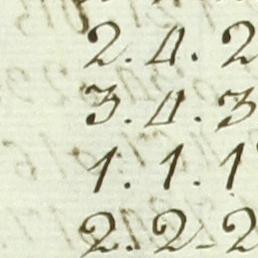 2. 4. 2
3. 4. 3
1. 1. 1
2. 2. 2